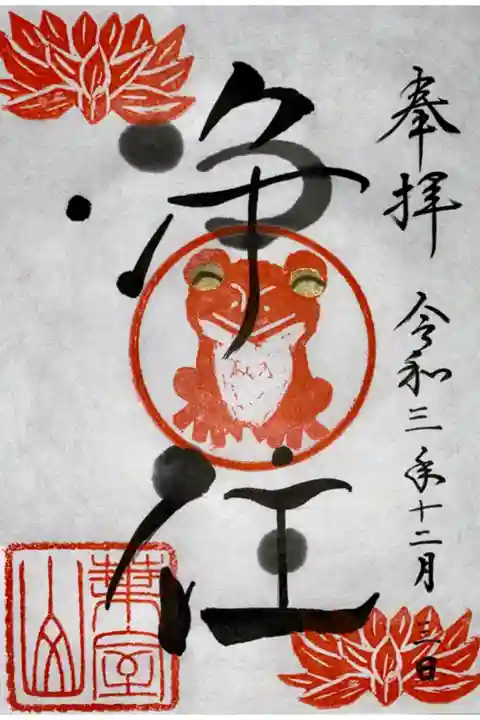 奉拝 令和三年十二月三日
浄住